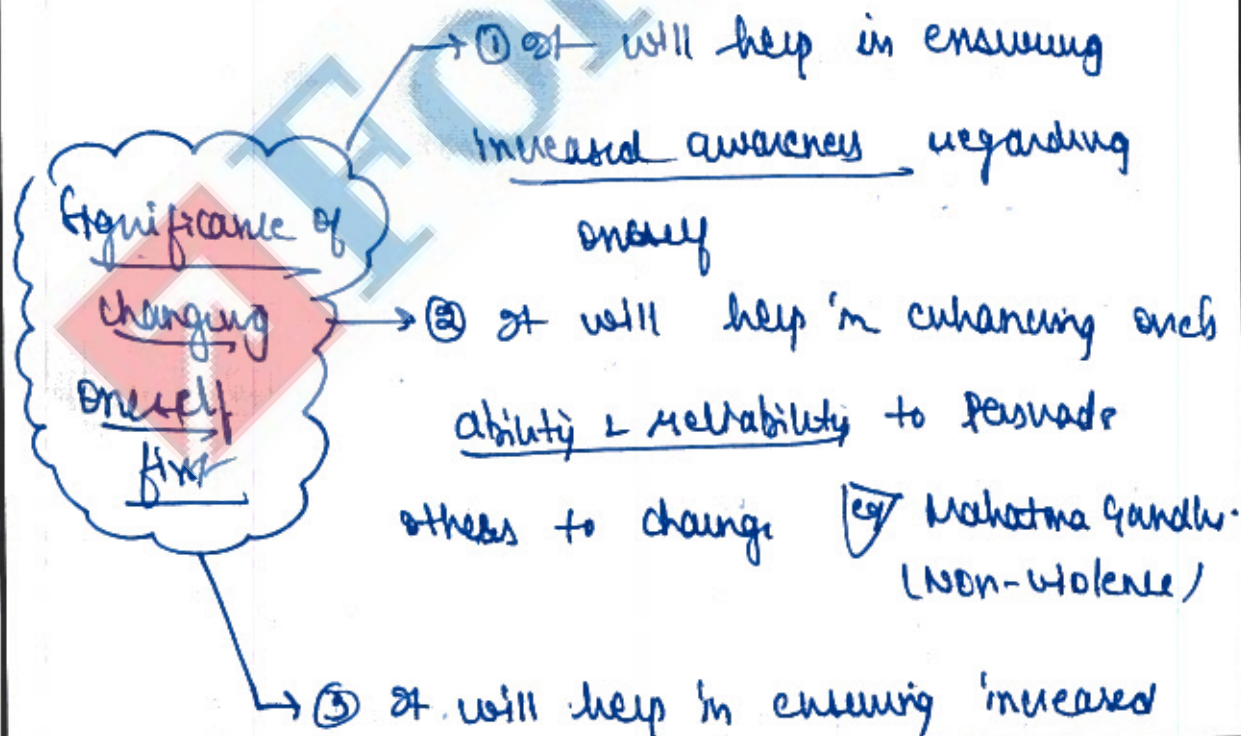 Significance of
changing
oneself
first
① It will help in ensuring
increased awareness regarding
oneself
② It will help in enhancing one's
ability & reliability to persuade
others to change eg Mahatma Gandhi.
(Non-violence)
③ It will help in ensuring increased